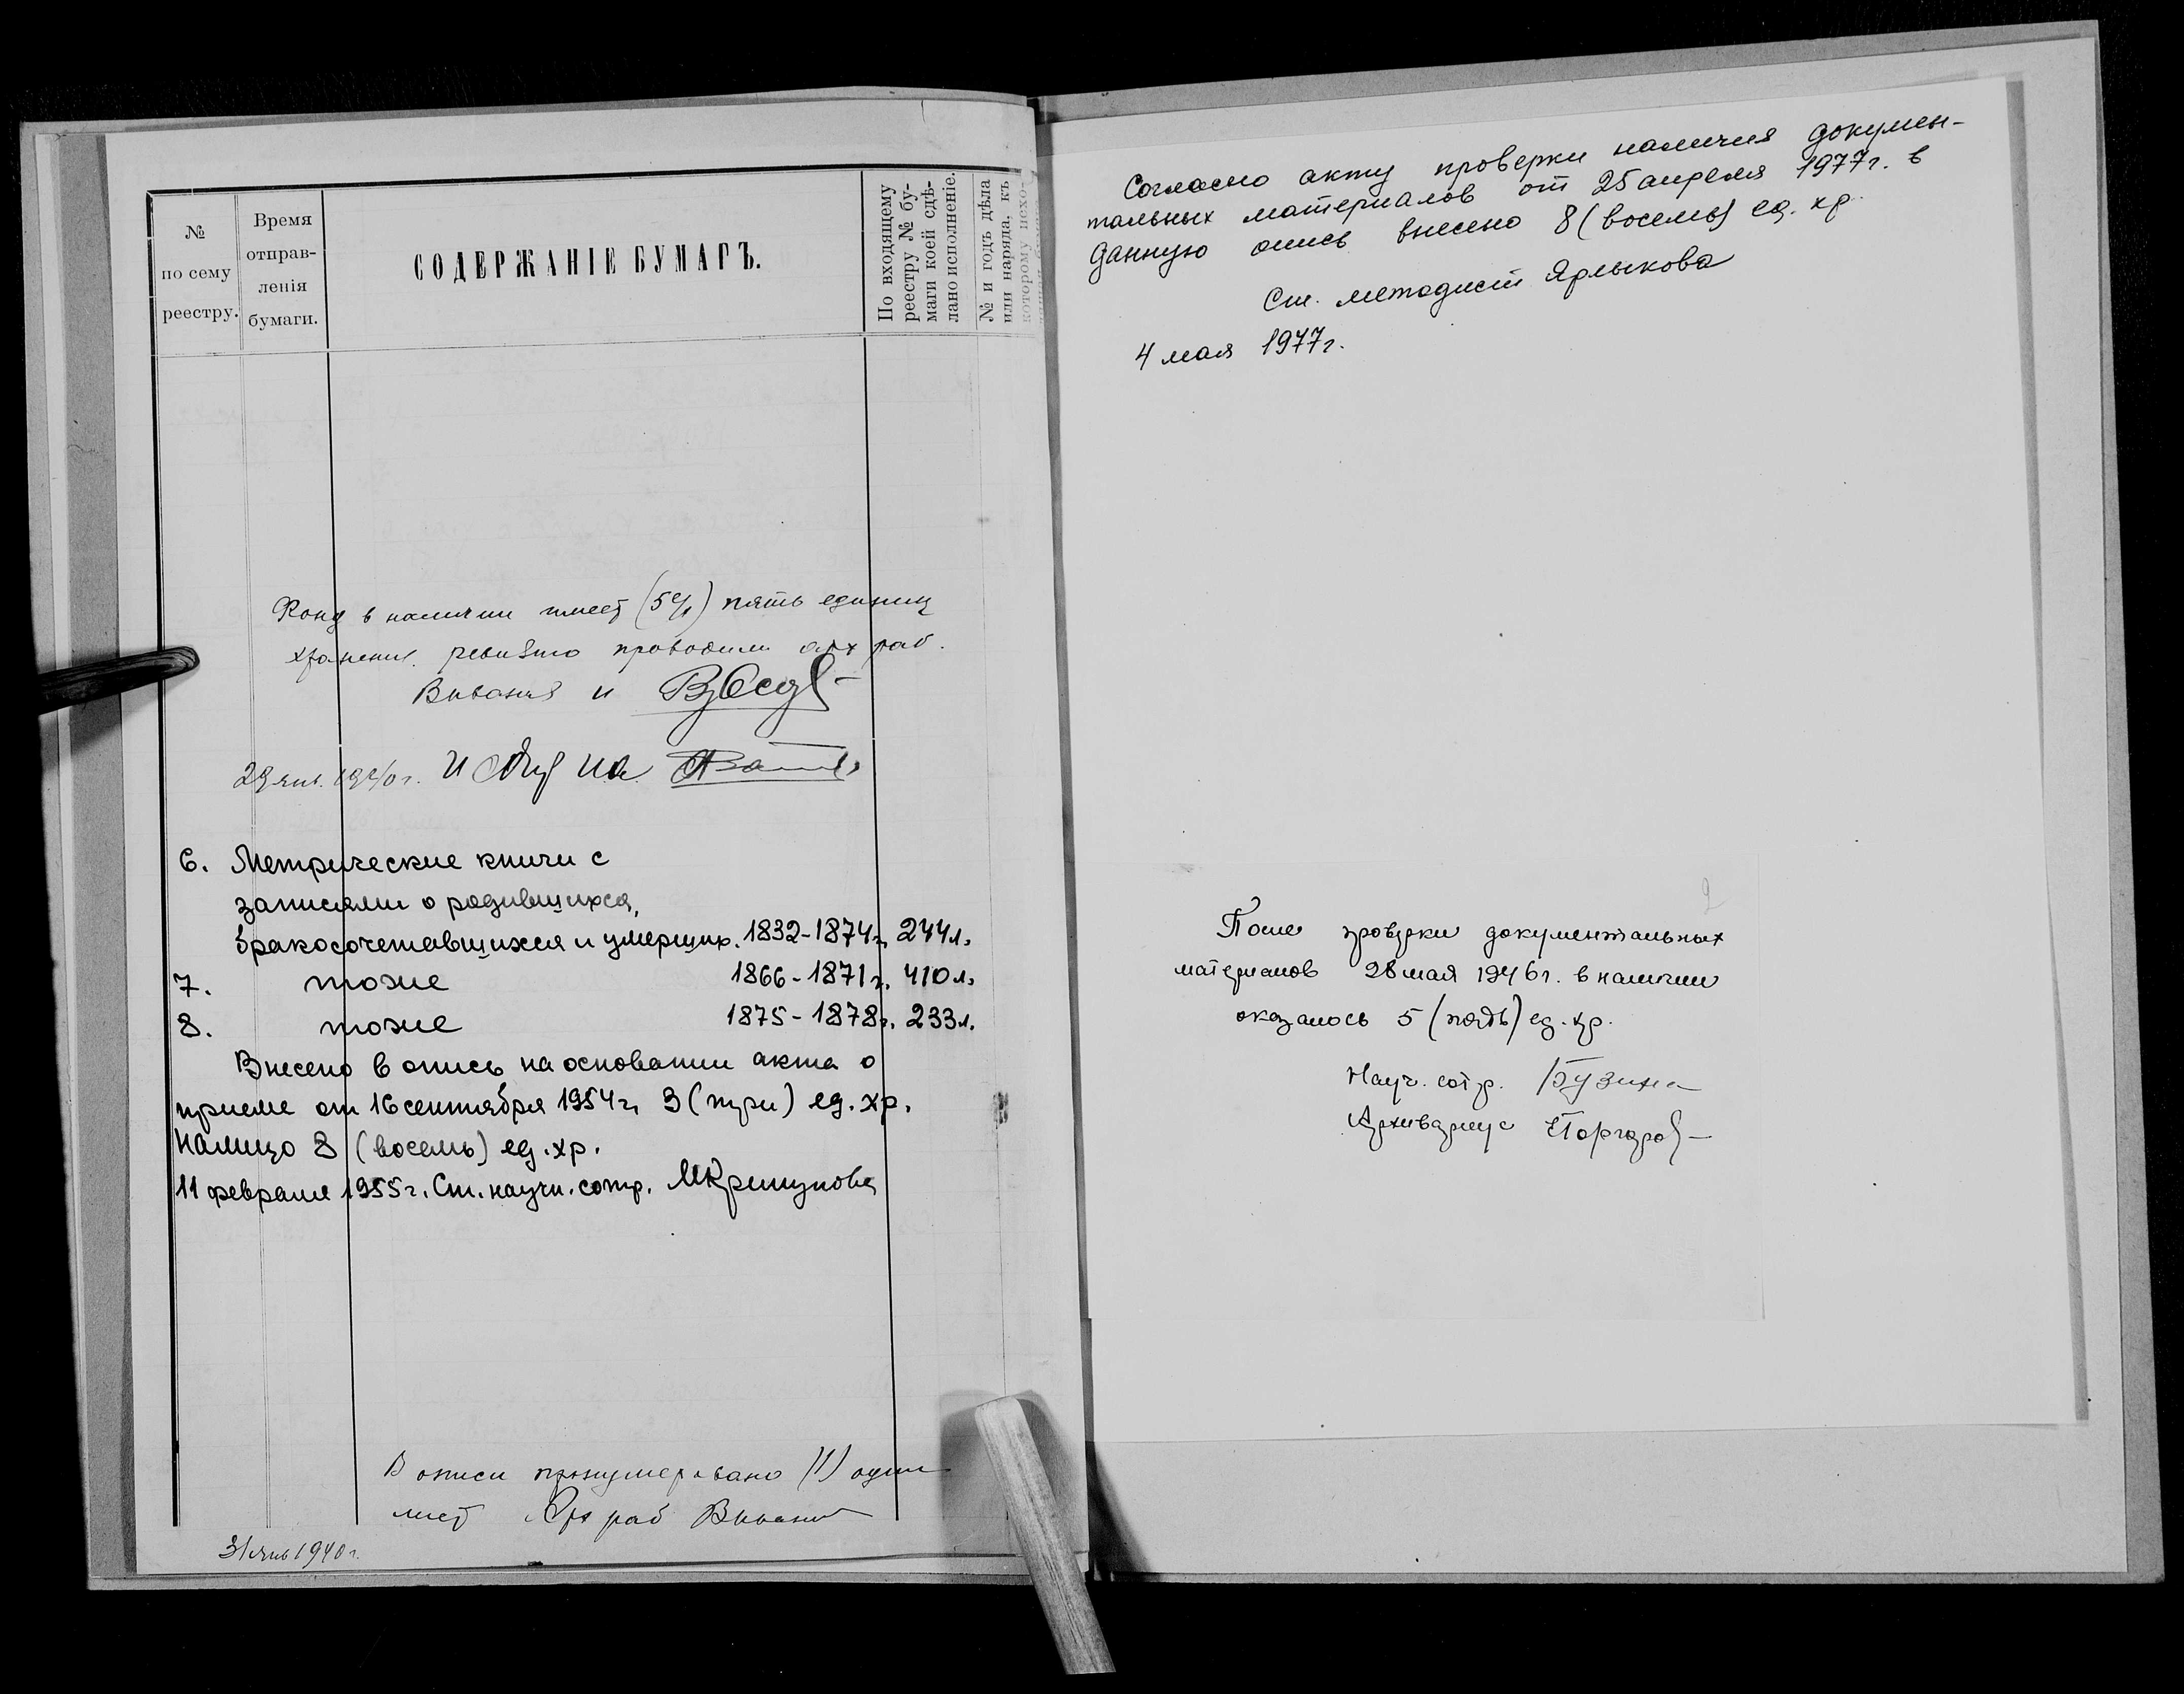 №
по сему
реестру.
Время
отправ-
ленія
бумаги.
СОДЕРЖАНІЕ БУМАГЪ.
По входящему
реестру № бу-
маги коей сдѣ-
лано исполненіе.
№ и годъ дѣла
или наряда, къ
которому исхо-
Фонд в наличии имеет (5 ) пять единиц
хранения. ревизию проводили арх раб.
и
29 янв. 1940 г.
6. Метрические книги с
записями о родившихся,
бракосочетавшихся и умерших. 1832-1874 г. 244 л.
7. тоже 1866-1871 г. 410 л.
8. тоже 1875-1878 г. 233 л.
Внесено в опись на основании акта о
приеме от 16 сентября 1954 г. 3 (три) ед. хр.
Налицо 8 (восемь) ед. хр.
11 февраля 1955 г. Ст. научн. сотр.
В описи пронумеровано (1) один
лист Арх раб
31 янв 1940 г.
Согласно акту проверки наличия докумен-
тальных материалов от 25 апреля 1977 г. в
данную опись внесено 8 (восемь) ед. хр.
Ст. методист Ярлыкова
4 мая 1977 г.
2
После проверки документальных
материалов 28 мая 1946 г. в наличии
оказалось 5 (пять) ед. хр.
Науч. сотр. Бузина
Архивариус